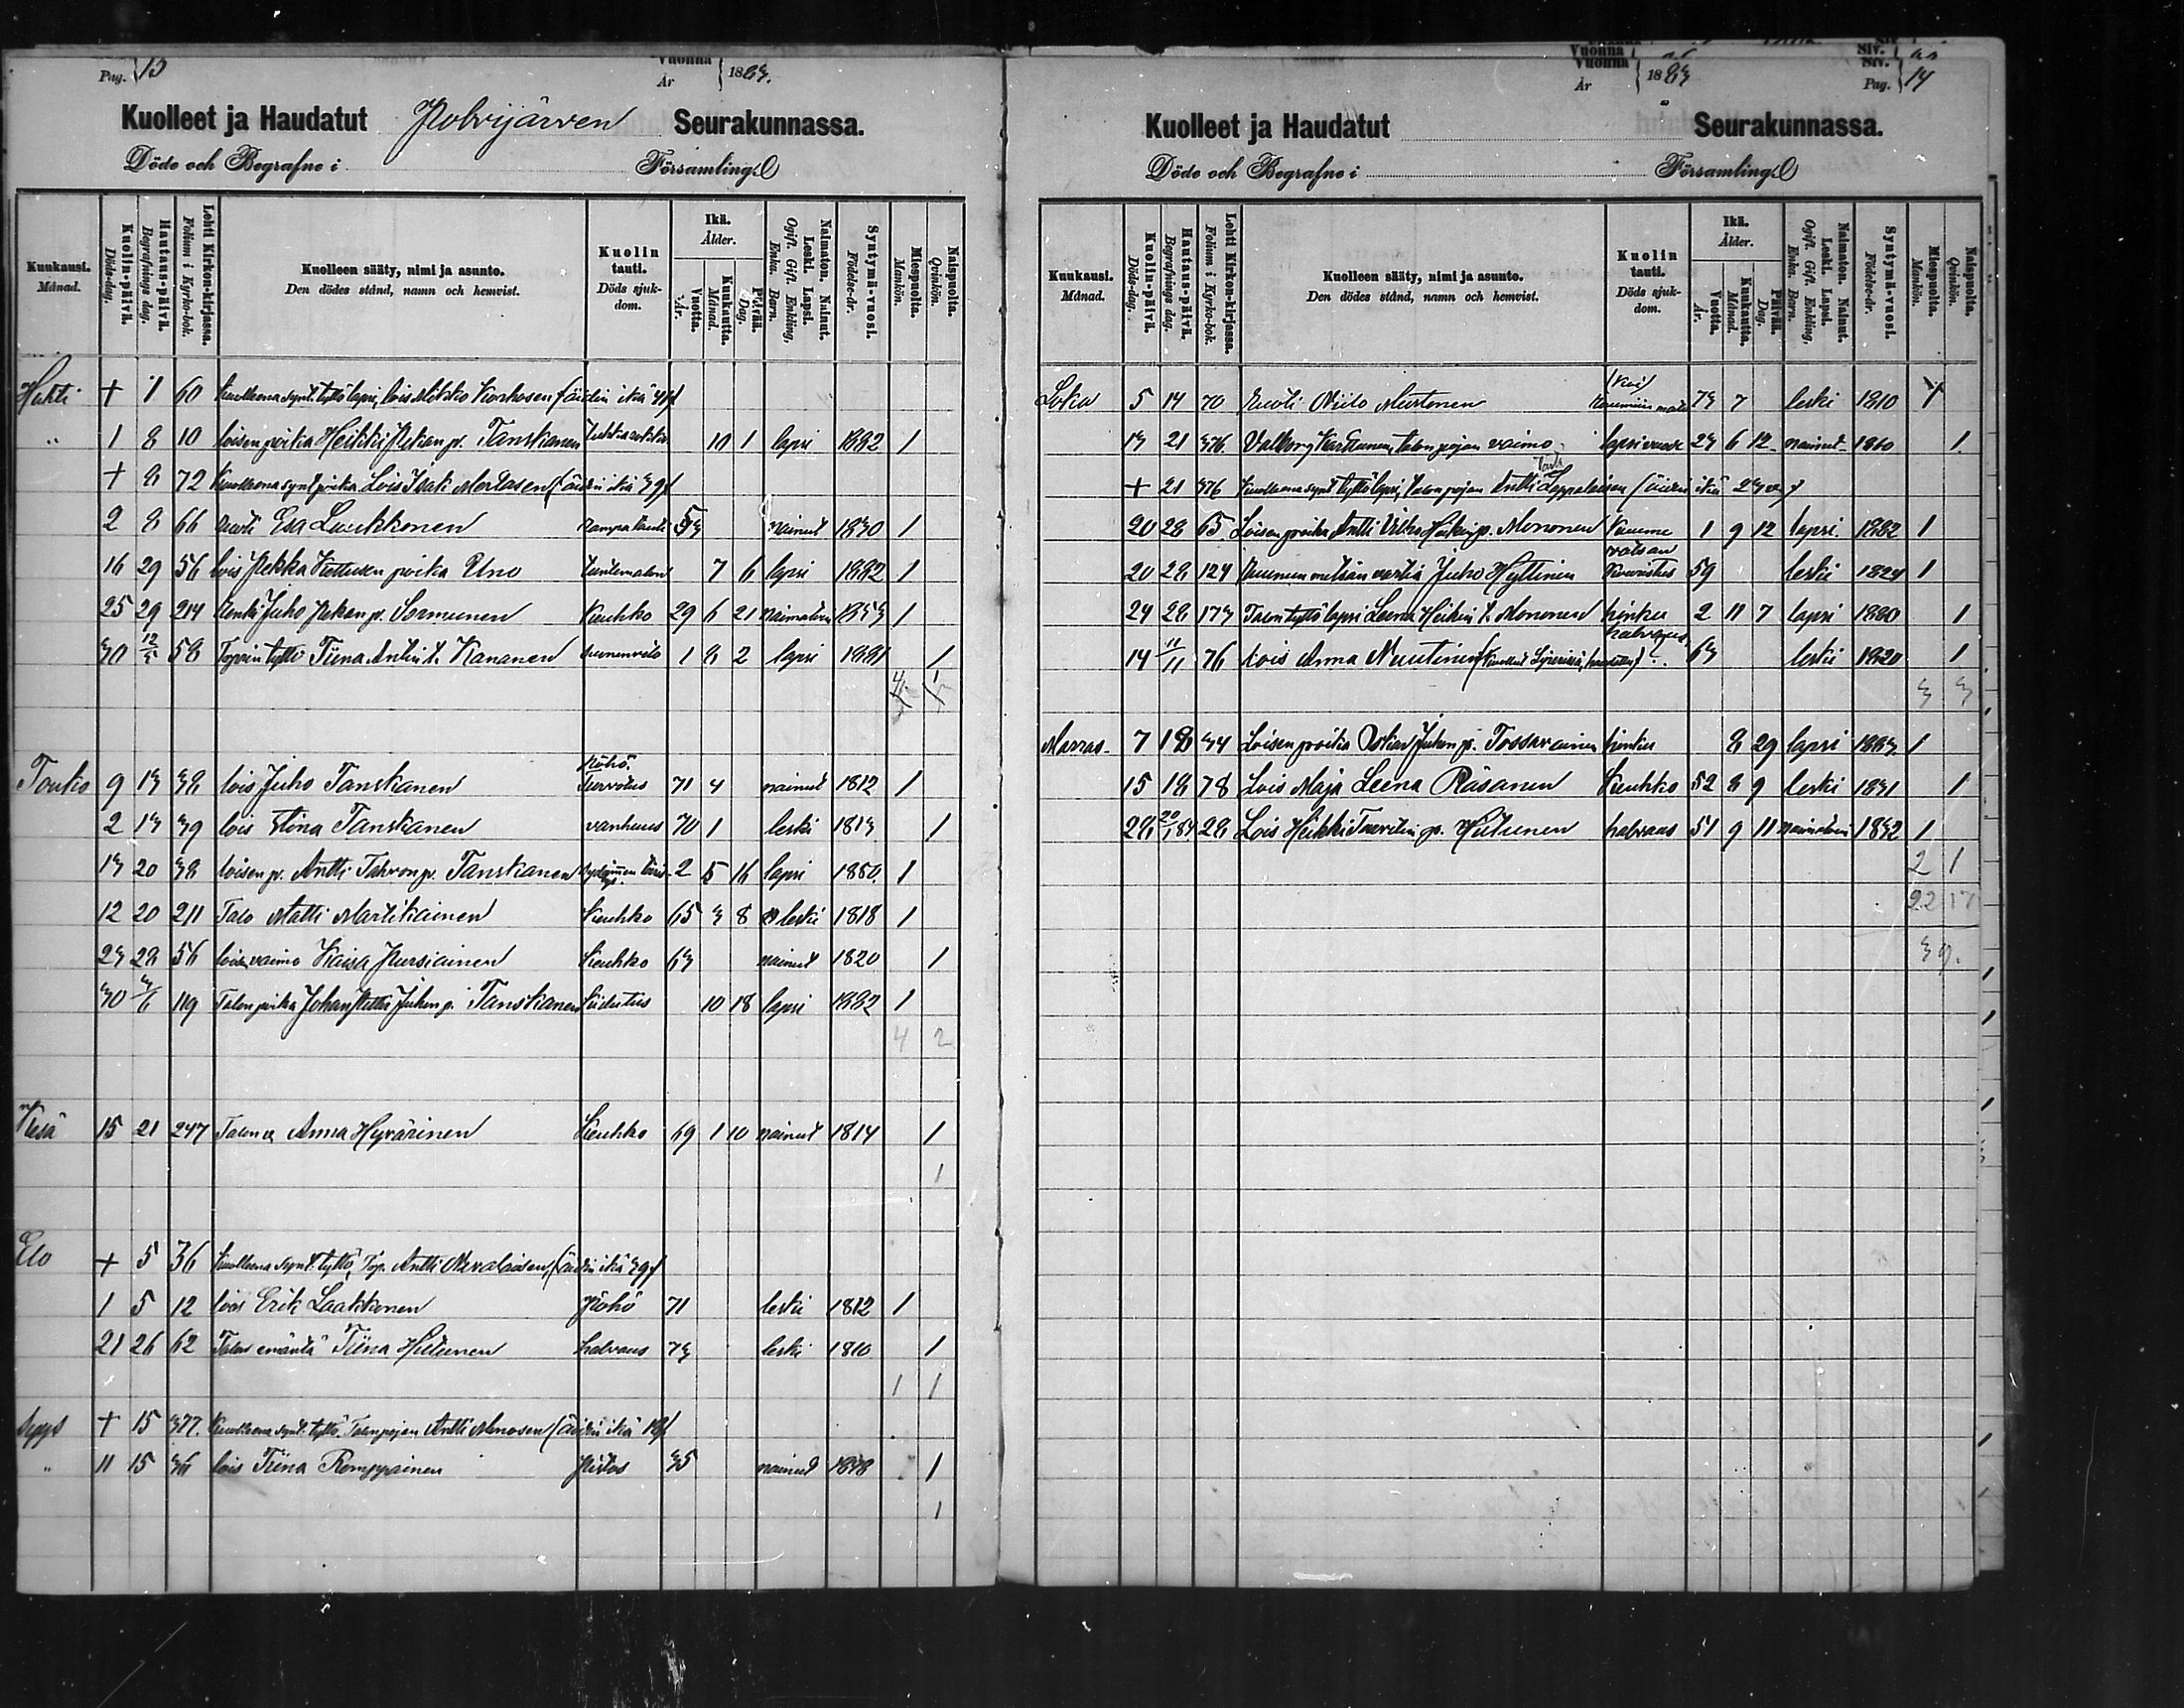 Pag. 13
Vuonna
År 1883.
Kuolleet ja Haudatut Polvijärven Seurakunnassa.
Döde och Begrafne i Församling.
Kuukausi. Månad.
Kuolin-päivä. Döds-dag.
Hautaus-päivä. Begrafnings dag.
Lehti Kirkon-kirjassa. Folium i Kyrko-bok.
Kuolleen sääty, nimi ja asunto. Den dödes stånd, namn och hemvist.
Kuolin tauti. Döds sjukdom.
Ikä. Ålder.
Vuotta. År.
Kuukautta. Månad.
Päivää. Dag.
Naimaton. Nainut. Leski. Lapsi. Ogift. Gift. Enkling, Enka. Barn.
Syntymä-vuosi. Födelse-år.
Miespuolta. Mankön.
Naispuolta. Qvinkön.
Huhti + 1 60 Kuolleena synt. tyttölapsi, lois Mikko Korhosen (äidin ikä 41)
" 1 8 10 loisen poika Heikki Pekan p. Tanskanen 10 1 lapsi 1882 1
+ 8 72 Kuolleena synt poika Lois Isak Mertasen (äidin ikä 39)
2 8 66 Esa Luukkonen 53 nainut 1830 1
16 29 56 lois Pekka Kettusen poika Uno 7 6 lapsi 1882 1
25 29 214 Renki Juho Pekan p. Sormunen Keuhko 29 6 21 naimaton 1853 1
30 12/5 58 Torpin tyttö Tiina Antin t. Kananen 1 8 2 lapsi 1881 1
4 1
Touko 9 13 38 lois Juho Tanskanen Pöhö. Turvotus 71 4 nainut 1812 1
2 13 39 lois Stina Tanskanen vanhuus 70 1 leski 1813 1
13 20 38 loisen p. Antti Tahvon p. Tanskanen 2 5 16 lapsi 1880. 1
12 20 211 Talo Matti Martikainen Keuhko 65 3 8 leski 1818 1
23 28 56 loisvaimo Kaisa Pursiainen Keuhko 63 nainut 1820 1
30 3/6 119 Talon poika Johan Petter Juhon p. Tanskanen 10 18 lapsi 1882 1
4 2
Kesä 15 21 247 Talon v Anna Hyvärinen Keuhko 69 1 10 nainut 1814 1
1
Elo + 5 36 Kuolleena synt. tyttö, Torp. Antti Nevalaisen, (äidin ikä 39)
1 5 12 lois Erik Laakkonen Pöhö 71 leski 1812 1
21 26 62 Talon emäntä Tiina Hiltunen halvaus 73 leski 1810 1
1 1
Syys + 15 377. Kuolleena synt. tyttö. Talonpojan Antti Monosen (äidin ikä 18)
" 11 15 lois Tiina Romppainen 35 nainut 1848 1
1
Vuonna
År 1883
Siv.
Pag. 14
Kuolleet ja Haudatut Seurakunnassa.
Döde och Begrafne i Församling.
Kuukausi. Månad.
Kuolin-päivä. Döds-dag.
Hautaus-päivä. Begrafnings dag.
Lehti Kirkon-kirjassa. Folium i Kyrko-bok.
Kuolleen sääty, nimi ja asunto. Den dödes stånd, namn och hemvist.
Kuolin tauti. Döds sjukdom.
Ikä. Ålder.
Vuotta. År.
Kuukautta. Månad.
Päivää. Dag.
Naimaton. Nainut. Leski. Lapsi. Ogift. Gift. Enkling, Enka. Barn.
Syntymä-vuosi. Födelse-år.
Miespuolta. Mankön.
Naispuolta. Qvinkön.
Loka 5 14 70 Niilo Martonen 73 7 leski 1810 1
13 21 376. Valborg Karhunen, talonpojan vaimo lapsivuode 23 6 12 nainut 1860 1.
+ 21 376 Kuolleena synt tyttölapsi, Talonpojan Antti Leppälaisen (äidin ikä 23 v.)
20 28 65. Loisen poika Antti Vilho Heikin p. Mononen Kuume 1 9 12 lapsi. 1882 1
20 28 124 Kruunun metsän vartia Juho Hyttinen vatsan Kouristus 59 leski 1824 1
24 28 173 Talon tyttölapsi Leena Heikin t. Mononen hinku 2 11 7 lapsi 1880 1
14 11/11 76 Lois Anna Nuutinen (Kuollut Liperissä, haudattu) halvaus? 63 leski 1820 1
3 3
Marras 7 18 34 Loisen poika Oskar Juhon p. Tossavainen hinku 8 29 lapsi 1883. 1
15 18 78 Lois Maja Leena Räsänen Keuhko 52 8 9 leski 1831 1
28 20/1 84. 28 Lois Heikki Taavetin p. Hiltunen halvaus 51 9 11 naimaton 1832 1
2 1
22 17
39.